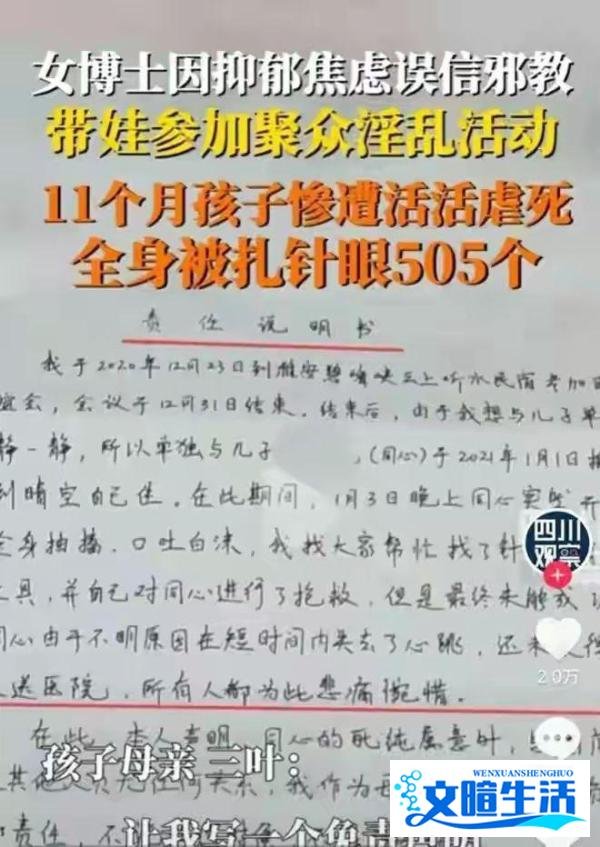 女博士因抑郁焦虑误信邪教
带娃参加聚众淫乱活动
11个月孩子惨遭活活虐死
全身被扎针眼505个
责任说明书
我于2020年12月23日到雅安碧峰峡云上听水民宿参加
会,会议于12月31日结束,结束后,由于我想与儿子单
静一静,所以单独与儿子 ,(同心)于2021年1月1日
到晴空自己住.在此期间,1月3日晚上同心突然开
全身抽搐.口吐白沫,我找大家帮忙找了针
工具,并自己对同心进行了抢救,但是最终未能成
同心由于不明原因在短时间内失去了心跳,还未
送医院,所有人都为此悲痛惋惜.
在此,本人声明,同心的死纯属意外,
其他 任何关系,我作为
责任,不
四川观察
2.0万
孩子母亲 三叶:
让我写一个免责
WENXUANSHENGHUO
文暄生活